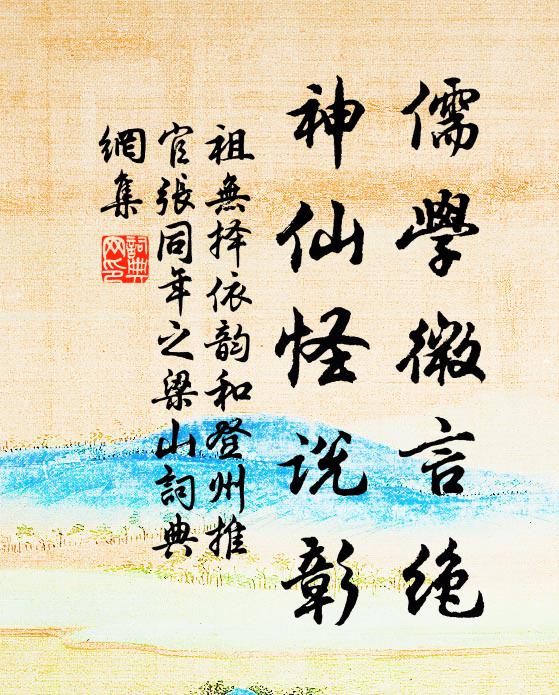 儒學微言絶
神仙怪説彰
祖無择依韵和登州推
官張同年之梁山詞典
網集
詞典
网印